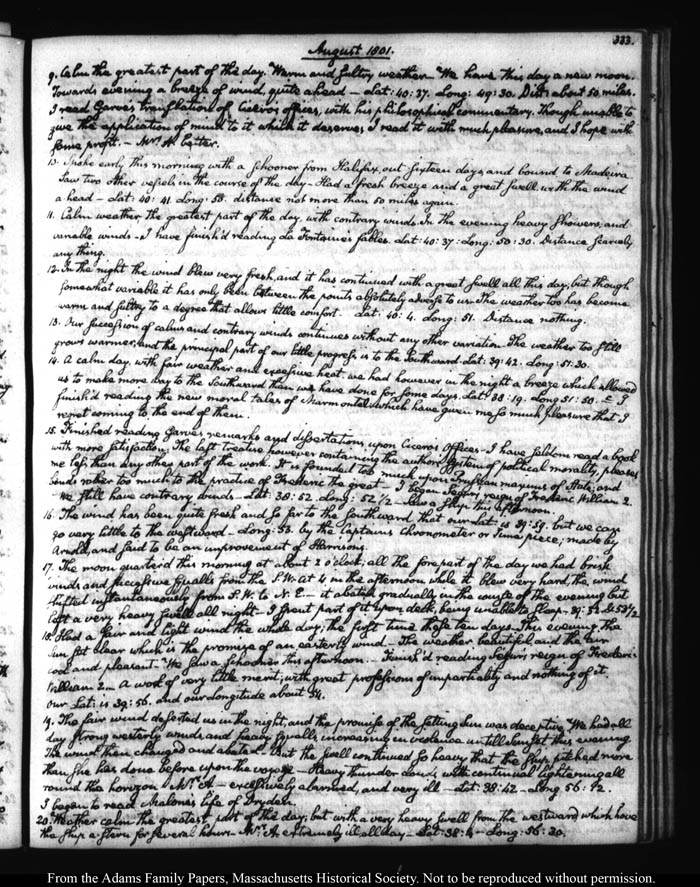 333.
August 1801.
9. Calm the greatest part of the day. Warm and sultry weather. We have this day a new moon.
Towards evening a breeze of wind, quite ahead — Lat: 40:37. Long: 49:30. Dist: about 50 miles.
I read Garve's translation of Cicero's offices, with his philosophical commentary. Though unable to
give the application of mind to it which it deserves, I read it with much pleasure, and I hope with
some profit. — Mrs. A. better.
10. Spoke early this morning with a schooner from Halifax, out sixteen days, and bound to Madeira.
Saw two other vessels in the course of the day — Had a fresh breeze and a great swell with the wind
a head — Lat: 40:41. Long: 50. distance not more than 50 miles again.
11. Calm weather the greatest part of the day, with contrary winds. In the evening heavy showers, and
variable winds — I have finish'd reading La Fontaine's fables. Lat: 40:37: Long: 50:30. Distance scarcely
any thing.
12. In the night the wind blew very fresh, and it has continued with a great swell all this day, but though
somewhat variable it has only been between the points absolutely adverse to us. The weather too has become
warm and sultry to a degree that allows little comfort. Lat: 40:4. Long: 51. Distance nothing.
13. Our succession of calms and contrary winds continues without any other variation. The weather too still
grows warmer, and the principal part of our little progress is to the Southward. Lat: 39:42. Long: 51:30.
14. A calm day, with fair weather and excessive heat. we had however in the night a breeze which allowed
us to make more way to the Southward than we have done for some days. Lat: 38:19. Long 51:50. — I
finish'd reading the new moral tales of Marmontel which have given me so much pleasure that I
regret coming to the end of them.
15. Finished reading Garve's remarks and dissertations upon Cicero's Offices — I have seldom read a book
with more satisfaction. The last treatise however containing the author's system of political morality, pleases
me less than any other part of the work. It is founded too much upon Prussian maxims of State; and
bends rather too much to the practice of Frederic the great — I began Segur's reign of Frederic William 2.
— We still have contrary winds — Lat: 38:52. Long: 52 1/2 — Saw a ship this afternoon.
16. The wind has been quite fresh and so far to the Southward that our Lat: is 39:59. but we can
go very little to the westward — Long: 53. by the Captains Chronometer or time piece; made by
Arnold, and said to be an improvement of Harrisons.
17. The moon quarter'd this morning at about 2 o'clock; all the fore part of the day we had brisk
winds and successive squalls from the S.W. at 4 in the afternoon while it blew very hard, the wind
shifted instantaneously from S.W. to N.E. — it abated gradually in the course of the evening but
left a very heavy swell all night — I spent part of it upon deck, being unable to sleep — 39:52 & 53 1/2
18. Had a fair and light wind the whole day, the first time these ten days — This evening, the
Sun set clear which is the promise of an easterly wind — The weather beautiful and the air
cool and pleasant. We saw a schooner this afternoon. — Finish'd reading Segur's reign of Frederic
William 2. — A work of very little merit; with great professions of impartiality and nothing of it.
Our Lat: is 39:56. and our Longitude about 54.
19. The fair wind deserted us in the night, and the promise of the setting Sun was deceptive. We had all
day strong westerly winds and heavy squalls, increasing in violence untill Sunset this evening
The wind then changed and abated — But the swell continued so heavy that the ship pitched more
than she has done before upon the voyage — Heavy thunder clouds with continual lightening all
round the horizon. Mrs. A — excessively alarmed, and very ill — Lat: 38:42 — Long 56:92.
I began to read Malone's life of Dryden.
20. Weather calm the greatest part of the day; but with a very heavy swell from the westward, which hove
the ship astern for several hours — Mrs. A. extremely ill all day — Lat: 38:4 — Long: 56:30.
From the Adams Family Papers, Massachusetts Historical Society. Not to be reproduced without permission.